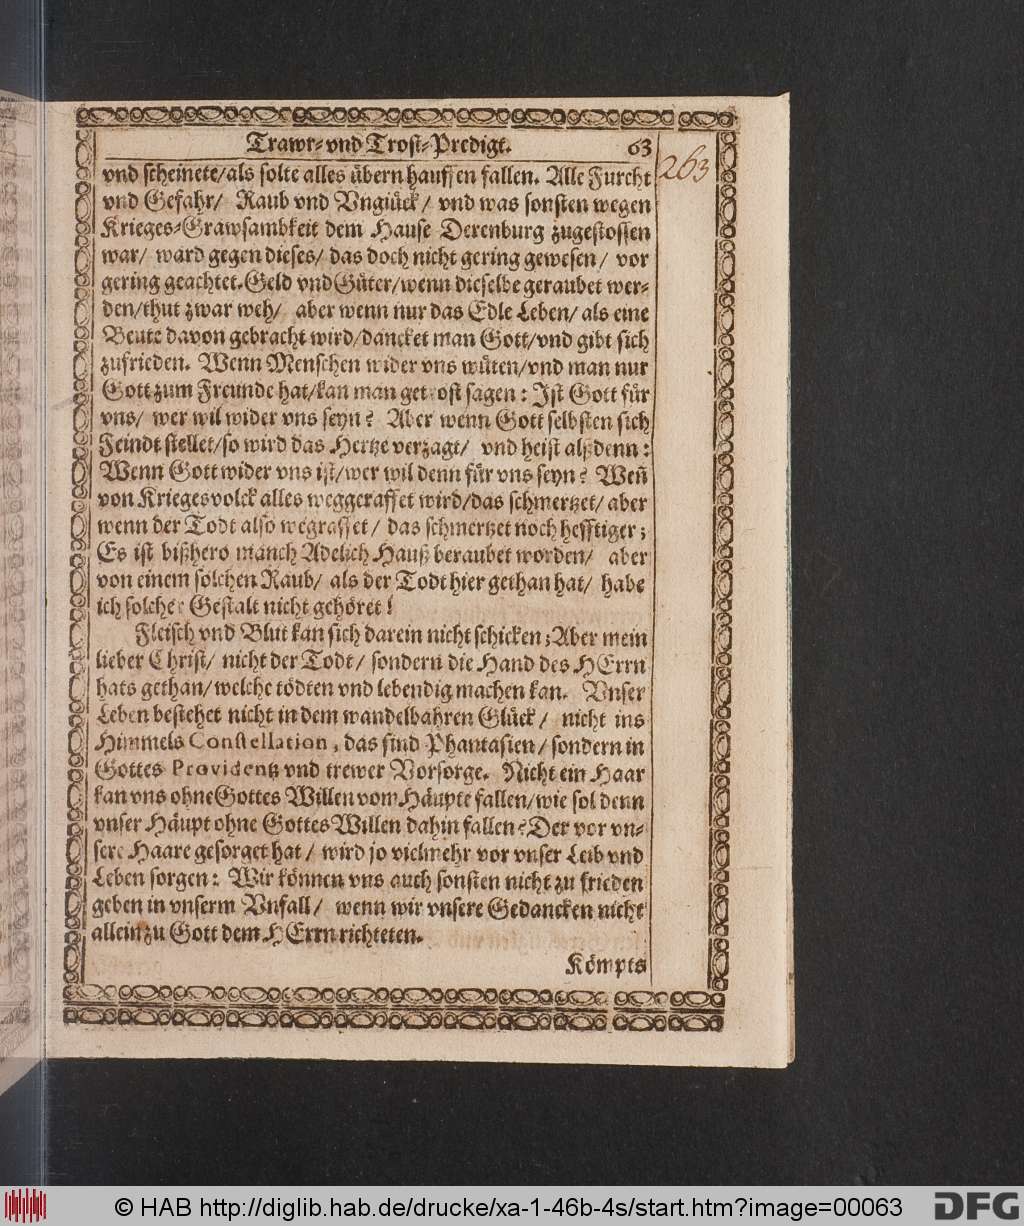 Trawr- vnd Trost-Predigt. 63
263
vnd scheinete/als solte alles übern hauffen fallen. Alle Furcht
vnd Gefahr/ Raub vnd Vnglück/ vnd was sonsten wegen
Krieges-Grawsambkeit dem Hause Derenburg zugestossen
war/ ward gegen dieses/ das doch nicht gering gewesen/ vor
gering geachtet. Geld vnd Güter/wenn dieselbe geraubet wer-
den/thut zwar weh/ aber wenn nur das Edle Leben/ als eine
Beute davon gebracht wird/dancket man Gott/vnd gibt sich
zufrieden. Wenn Menschen wider vns wüten/vnd man nur
Gott zum Freunde hat/kan man getrost sagen: Ist Gott für
vns/ wer wil wider vns seyn? Aber wenn Gott selbsten sich
Feindt stellet/so wird das Hertze verzagt/ vnd heist alßdenn:
Wenn Gott wider vns ist/wer wil denn für vns seyn? Weñ
von Kriegesvolck alles weggeraffet wird/das schmertzet/ aber
wenn der Todt also wegraffet/ das schmertzet noch hefftiger;
Es ist bißhero manch Adelich Hauß beraubet worden/ aber
von einem solchen Raub/ als der Todt hier gethan hat/ habe
ich solcher Gestalt nicht gehöret!
Fleisch vnd Blut kan sich darein nicht schicken; Aber mein
lieber Christ/ nicht der Todt/ sondern die Hand des HErrn
hats gethan/welche tödten vnd lebendig machen kan. Vnser
Leben bestehet nicht in dem wandelbahren Glück/ nicht ins
Himmels Constellation, das sind Phantasien/ sondern in
Gottes Providentz vnd trewer Vorsorge. Nicht ein Haar
kan vns ohne Gottes Willen vom Häupte fallen/wie sol denn
vnser Häupt ohne Gottes Willen dahin fallen? Der vor vn-
sere Haare gesorget hat/ wird jo vielmehr vor vnser Leib vnd
Leben sorgen: Wir können vns auch sonsten nicht zu frieden
geben in vnserm Vnfall/ wenn wir vnsere Gedancken nicht
allein zu Gott dem HErrn richteten.
Kömpts
© HAB http://diglib.hab.de/drucke/xa-1-46b-4s/start.htm?image=00063
DFG